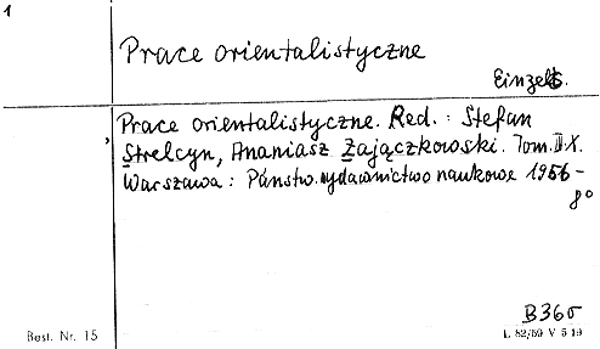 1
Prace orientalistyczne
Einzels.
Prace orientalistyczne. Red.: Stefan
Strelcyn, Ananiasz Zajączkowski. Tom. II. X.
Warszawa: Państw. wydawnictwo naukowe 1956 -
8°
B365
Best. Nr. 15
L 82/59 V 5 19